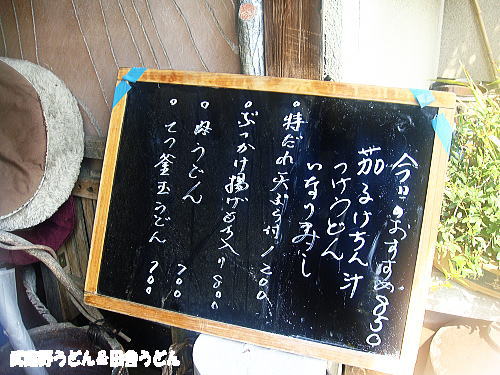 今日のおすすめ850
茄るけちん汁
つけうどん
いなり
。特だれ天ぷら付1200
。ぶっかけ揚げもち入り800
。うどん 700
。てつ釜玉うどん 700
武蔵野うどん&田舎うどん